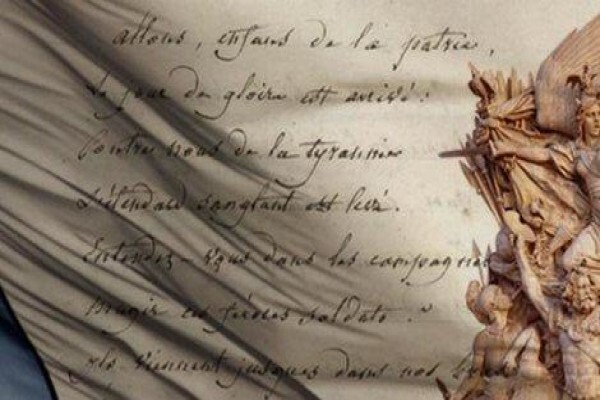 allons, enfans de la patrie,
Le jour de gloire est arrivé :
Contre nous de la tyrannie
L'étendard sanglant est levé.
Entendez-vous dans les campagnes
mugir ces féroces soldats ?
Ils viennent jusques dans nos bras